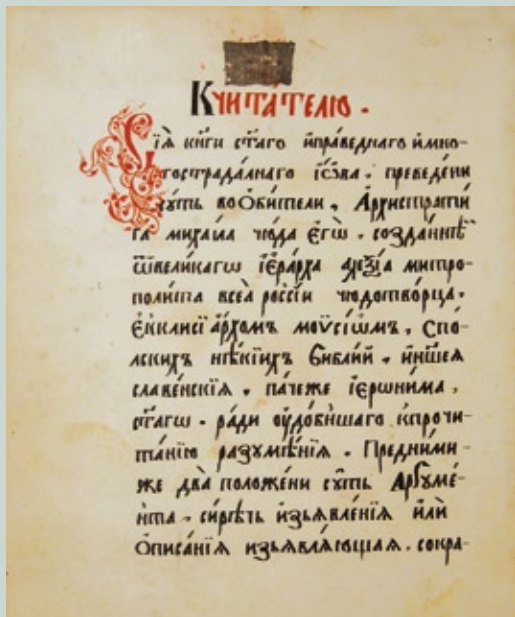 К читателю .
Сїѧ̀ кни́ги ст҃а́го и҆ пра́веднаго и҆ мно-
гострада́лнаго і҆ѡ́ва . преведе́ни
сꙋ́ть во Ѻ҆би́тели , А҆рхистрати́
га михаи́ла чю́да є҆гѡ̀ . созда́ннѣй
ѿ вели́кагѡ і҆ера́рха алеѯі́а митро-
поли́та всеѧ̀ рѡссі́и чюдотво́рца .
Є҆кклисїа́рхомъ моѷсі́ѡмъ . Съ по́-
лскихъ нѣ́кїихъ Библі́й , и҆ на́шеѧ
славе́нскїѧ , па́чеже і҆ерѡни́ма ,
ст҃а́гѡ . ра́ди оу҆до́бнѣйшаго к прочи-
та́нїю разꙋмѣ́нїѧ . Пред ни́ми-
же два̀ положе́ни сꙋ́ть А҆рꙋмє́-
нта . си́рѣчь и҆зъѧвле́нїѧ и҆лѝ
Ѻ҆писа́нїѧ и҆зъѧвлѧ́ющаѧ . сокра-